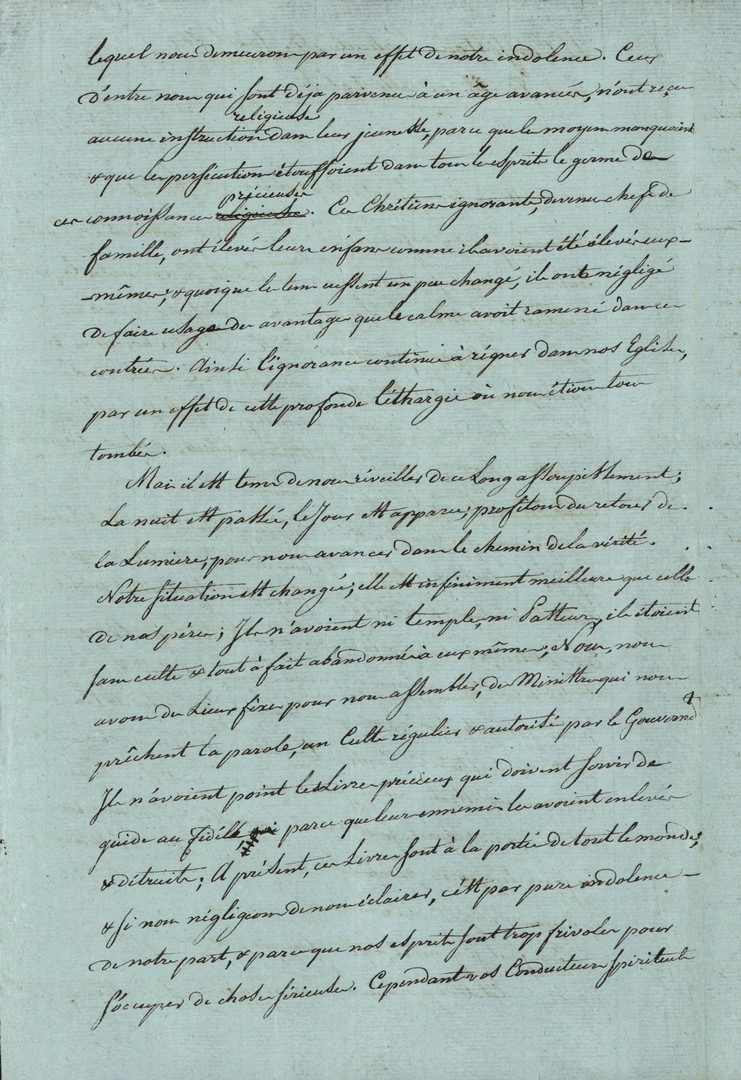 lequel nous demeurons par un effet de notre indolence. Ceux
d'entre nous qui sont déja parvenus à un âge avancés, n'ont reçu
religieuse
aucune instruction dans leur jeunesse, parce que les moyens manquoient
& que les persécutions étouffoient dans tous les esprits le germe de
précieuses
ces connoissances religieuses. Ces Chrétiens ignorants, devenus chefs de
famille, ont élevés leurs enfans comme ils avoient été élevés eux-
-mêmes; & quoique les tems eussent un peu changé, ils ont négligé
de faire usage des avantages que le calme avoit ramené dans ces
contrées. Ainsi l'ignorance continue à régner dans nos Eglises,
par un effet de cette profonde léthargie où nous étions tous
tombés.
Mais il est tems de nous réveiller de ce Long assoupissement;
La nuit est passée, le Jour est apparu; profitons du retour de
la Lumiere, pour nous avancer dans le chemin de la vérité.
Notre situation est changée; elle est infiniment meilleure que celle
de nos péres; Ils n'avoient ni temples, ni Pasteurs, ils étoient
sans culte & tout à fait abandonnés à eux mêmes; Nous, nous
avons des Lieux fixes pour nous assembler, des Ministres qui nous
prêchent la parole, un Culte régulier & autorisé par le Gouvernt
Ils n'avoient point les Livres précieux qui doivent servir de
guide au fidélle parce que leurs ennemis les avoient enlevés
& détruits; A présent, ces Livres sont à la portée de tout le monde;
& si nous négligeons de nous éclairer, c'est par pure indolence -
de notre part, & parce que nos esprits sont trop frivoles pour
s'occuper de choses sérieuses. Cependant vos Conducteurs spirituels